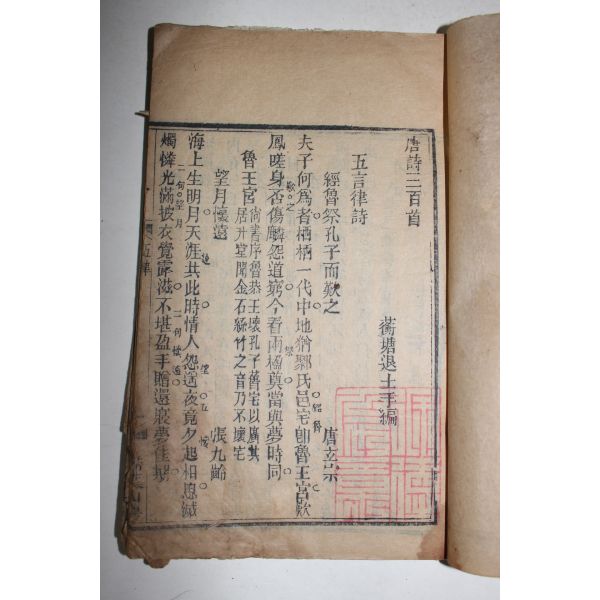 唐詩三百首
蘅塘退士手編
五言律詩
經魯祭孔子而歎之 唐玄宗
夫子何爲者栖栖一代中地猶鄹氏邑宅卽魯王宮歎
鳳嗟身否傷麟怨道窮今看兩楹奠當與夢時同
魯王宮 尙書序魯恭王壞孔子舊宅以廣其
居升堂聞金石絲竹之音乃不壞宅
望月懷遠 張九齡
海上生明月天涯共此時情人怨遙夜竟夕起相思滅
燭憐光滿披衣覺露滋不堪盈手贈還寢夢佳期